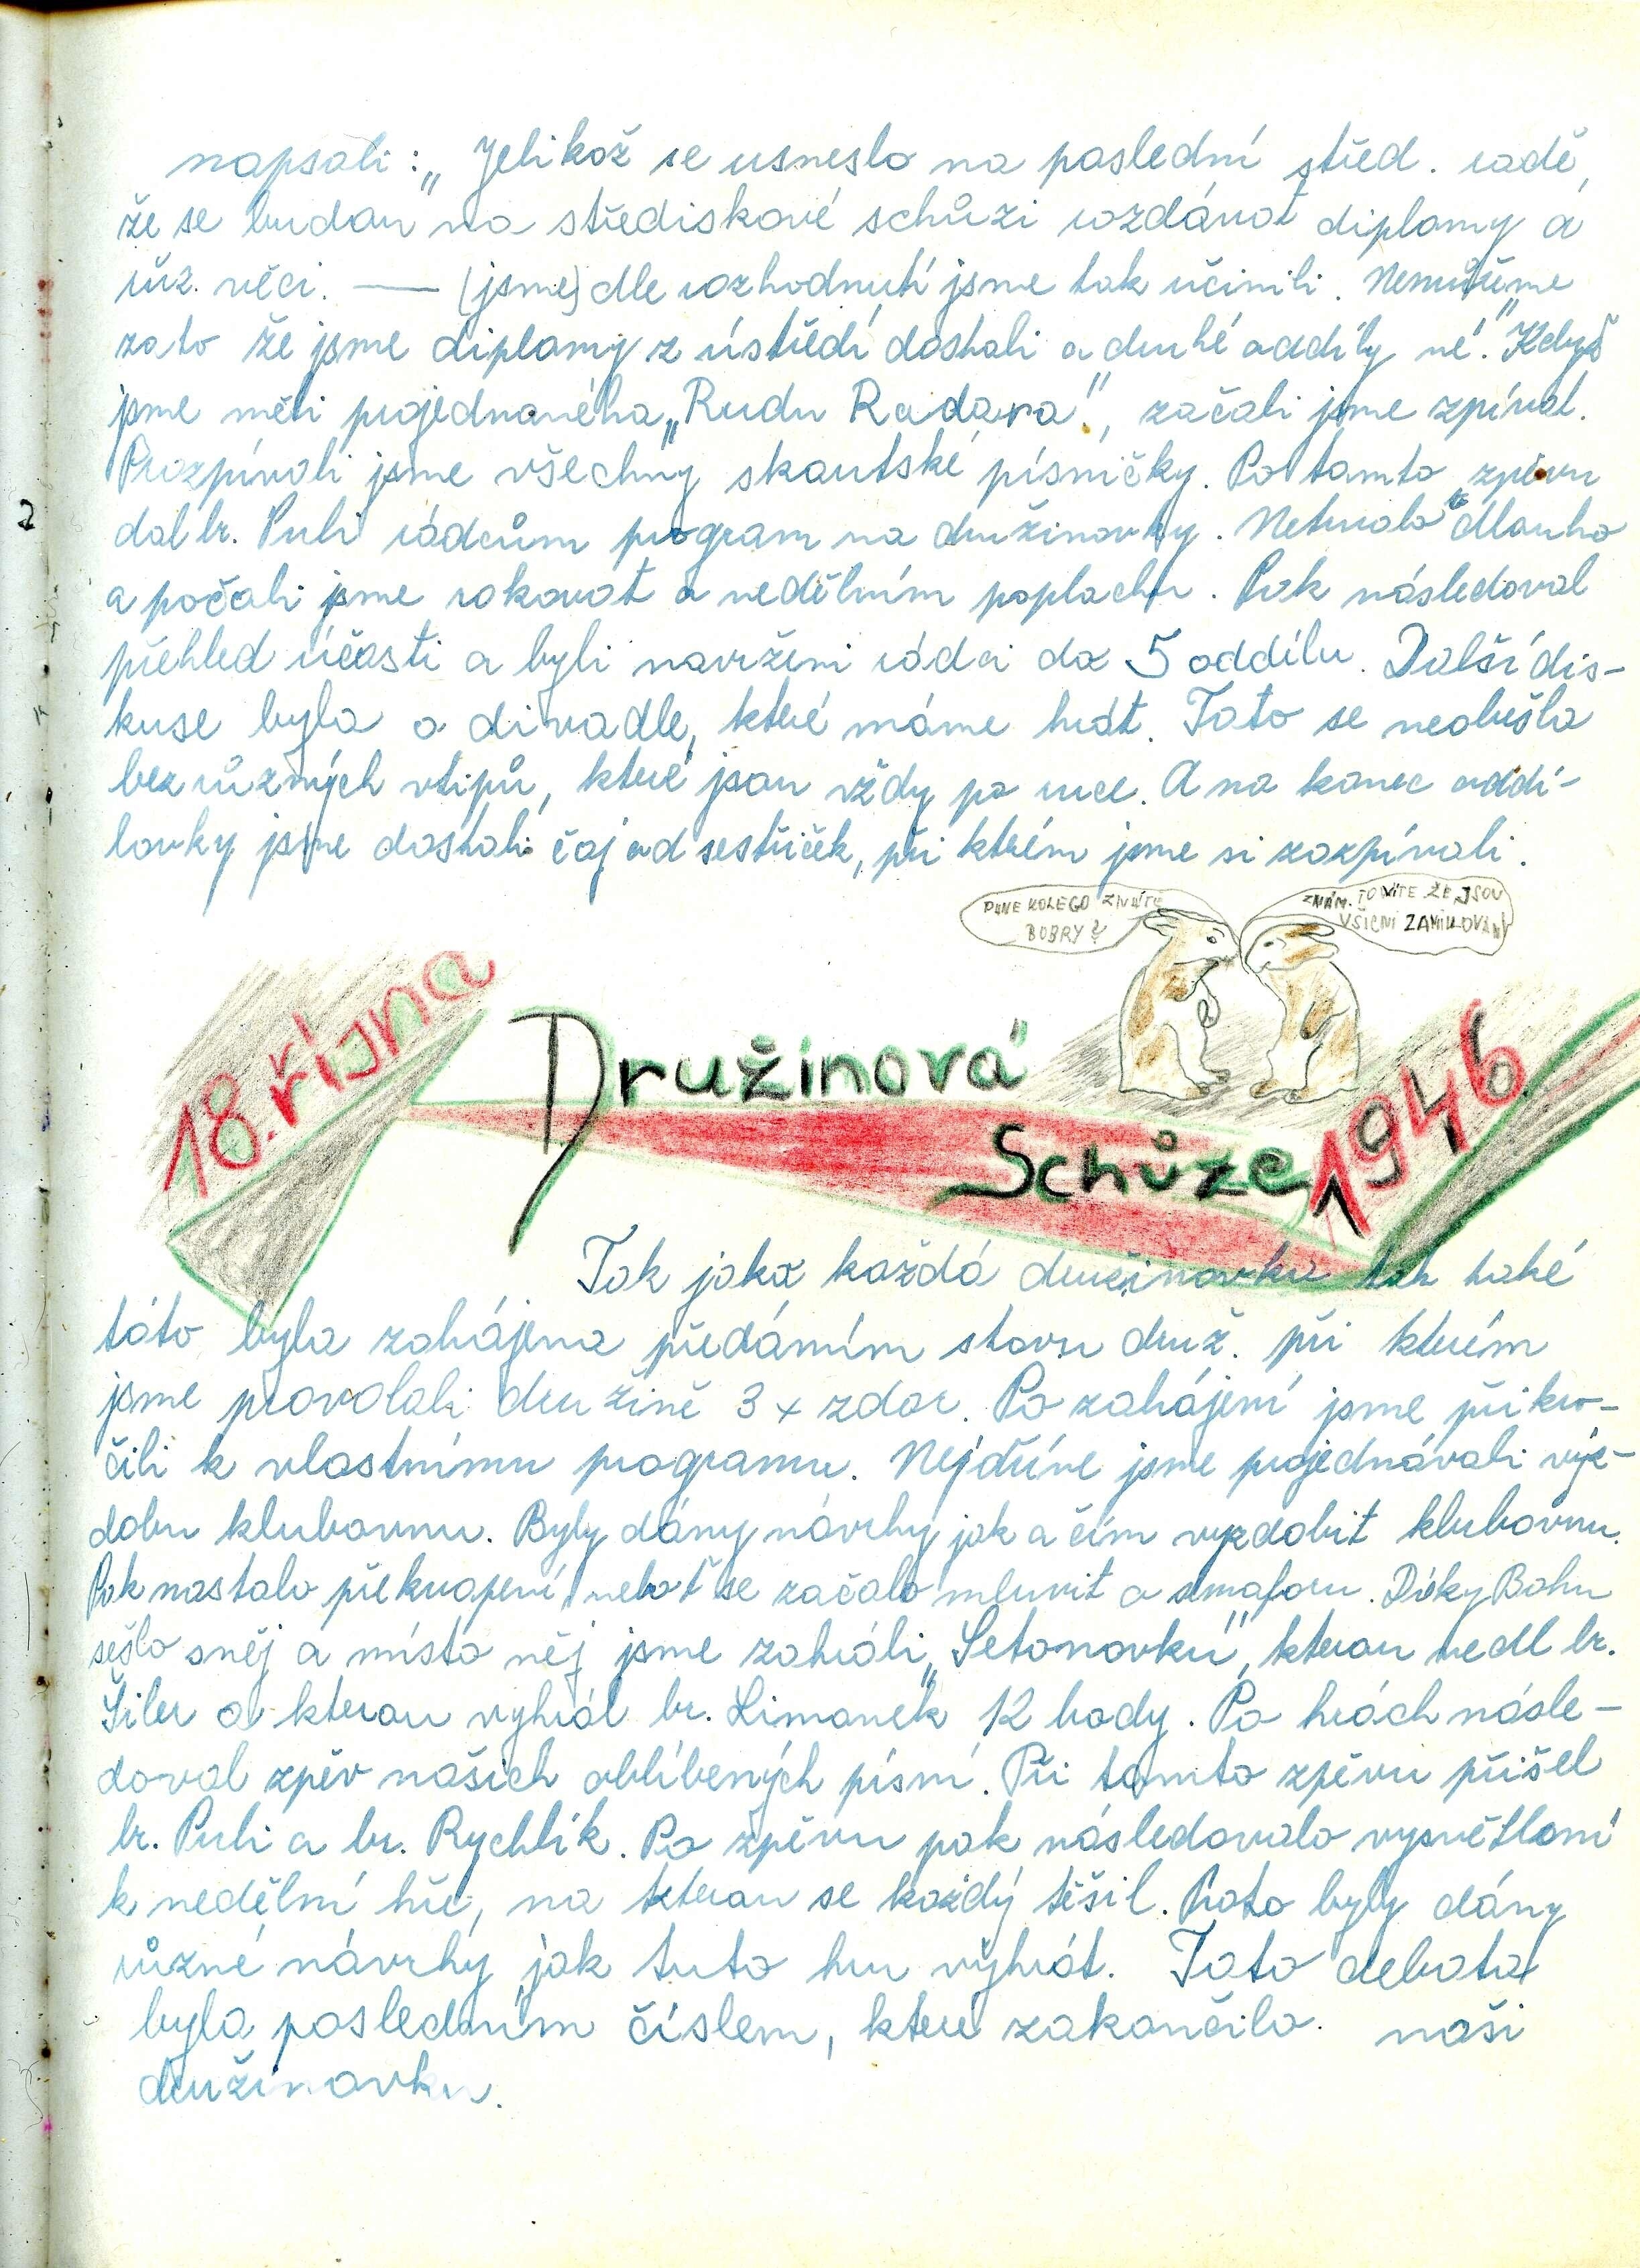 napsali: „Jelikož se usneslo na poslední střed. radě,
že se budou na střediskové schůzi rozdávat diplomy a
růz. věci. — (jsme) dle rozhodnutí jsme tak učinili. Nemůžeme
zato že jsme diplomy z ústředí dostali a druhé oddíly né." Když
jsme měli projednaného „Rudu Radara", začali jsme zpívat.
Prozpívali jsme všechny skautské písničky. Po tomto zpěvu
dal br. Puli rádcům program na družinovky. Netrvalo to dlouho
a počali jsme rokovat o nedělním poplachu. Pak následoval
přehled účasti a byli navrženi rádci do 5 oddílu. Další dis-
kuse byla o divadle, které máme hrát. Tato se neobešla
bez různých vtipů, které jsou vždy po ruce. A na konec oddí-
lovky jsme dostali čaj od sestřiček, při kterém jsme si zazpívali.
PANE KOLEGO ZNÁTE
BOBRY?
ZNÁM. TO VÍTE ŽE JSOU
VŠICNI ZAMILOVANÝ
18. října
Družinová
Schůze
1946
Tak jako každá družinovka tak také
táto byla zahájena předáním stavu druž. při kterém
jsme provolali družině 3 x zdar. Po zahájení jsme přikro-
čili k vlastnímu programu. Nejdříve jsme projednávali výz-
dobu klubovnu. Byly dány návrhy jak a čím vyzdobit klubovnu.
Pak nastalo překvapení, neboť se začalo mluvit o smaforu. Díky Bohu
sešlo sněj a místo něj jsme zahráli „Setonovku", kterou vedl br.
Šiler a kterou vyhrál br. Limanek 12 body. Po hrách násle-
doval zpěv našich oblíbených písní. Při tomto zpěvu přišel
br. Puli a br. Rychlík. Po zpěvu pak následovalo vysvětlení
k nedělní hře, na kterou se každý těšil. Proto byly dány
různé návrhy jak tuto hru vyhrát. Tato debata
byla posledním číslem, které zakončilo naši
družinovku.